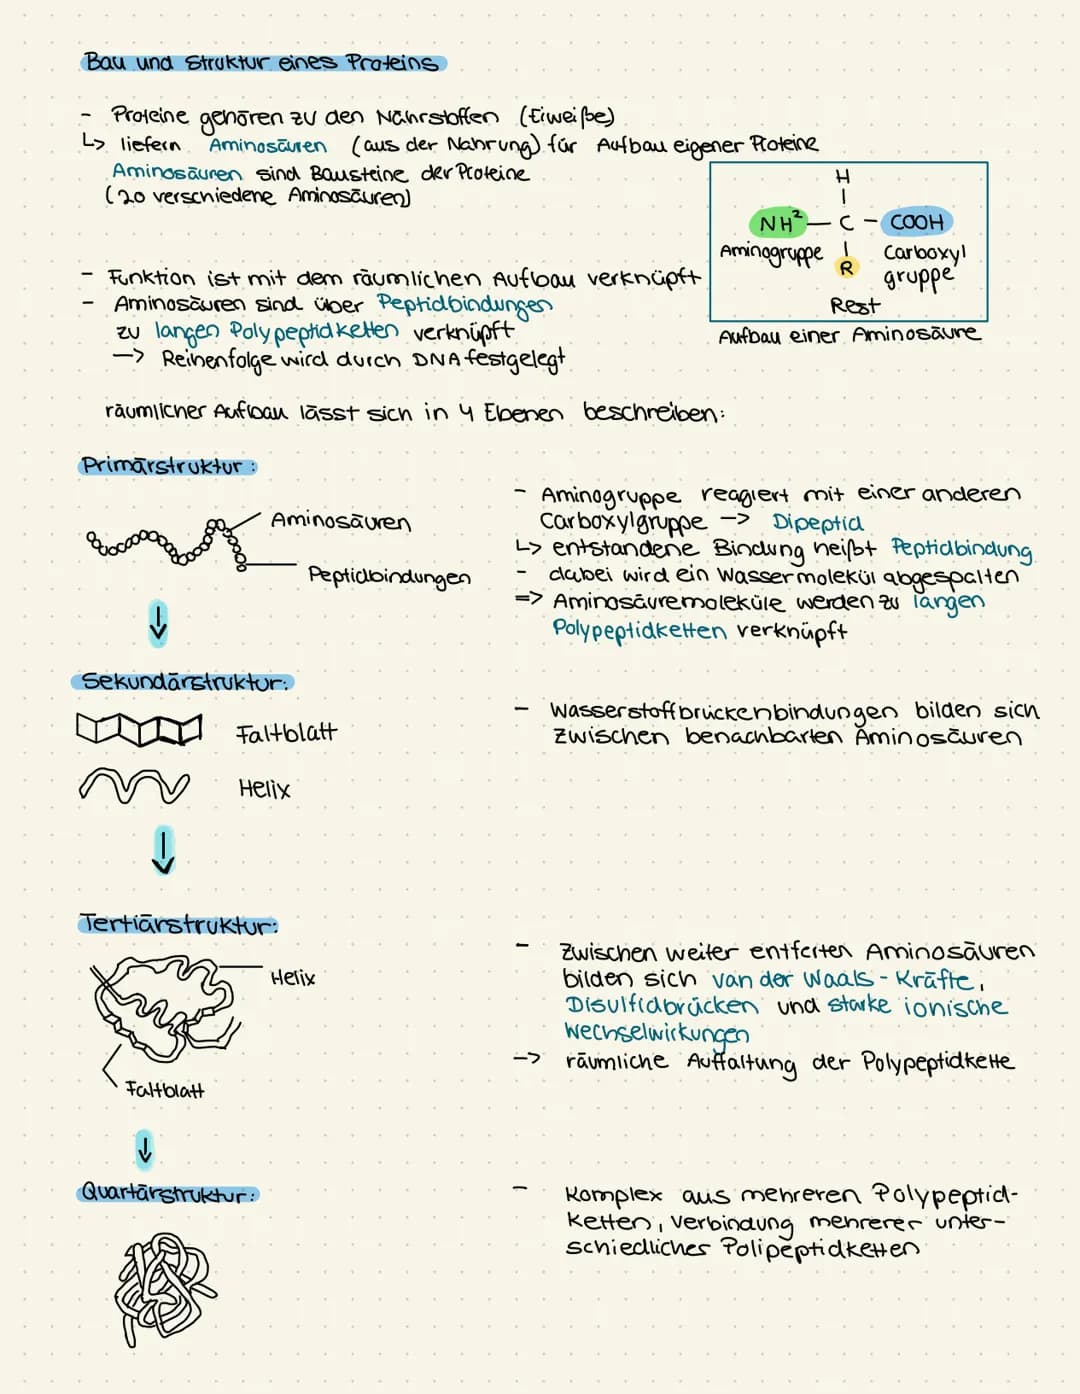 Bau und Struktur eines Proteins
- Proteine gehören zu den Nährstoffen (Eiweiße)
↳ liefern Aminosäuren (aus der Nahrung) für Aufbau eigener Proteine
Aminosäuren sind Bausteine der Proteine
(20 verschiedene Aminosäuren)
H
NH² – C – COOH
Aminogruppe
R
Carboxyl
gruppe
Rest
Aufbau einer Aminosäure
- Funktion ist mit dem räumlichen Aufbau verknüpft
- Aminosäuren sind über Peptidbindungen
zu langen Polypeptidketten verknüpft
-> Reihenfolge wird durch DNA festgelegt
räumlicher Aufbau lässt sich in 4 Ebenen beschreiben:
Primärstruktur:
Aminosäuren
Peptidbindungen
- Aminogruppe reagiert mit einer anderen
Carboxylgruppe -> Dipeptid
↳ entstandene Bindung heißt Peptidbindung
- dabei wird ein Wassermolekül abgespalten
=> Aminosäuremoleküle werden zu langen
Polypeptidketten verknüpft
Sekundärstruktur:
Faltblatt
Helix
- Wasserstoffbrückenbindungen bilden sich
zwischen benachbarten Aminosäuren
Tertiärstruktur:
Helix
Faltblatt
- Zwischen weiter entferten Aminosäuren
bilden sich van der Waals-Kräfte,
Disulfidbrücken und starke ionische
Wechselwirkungen
-> räumliche Auffaltung der Polypeptidkette
Quartärstruktur:
- Komplex aus mehreren Polypeptid-
ketten, Verbindung mehrerer unter-
schiedlicher Polipeptidketten